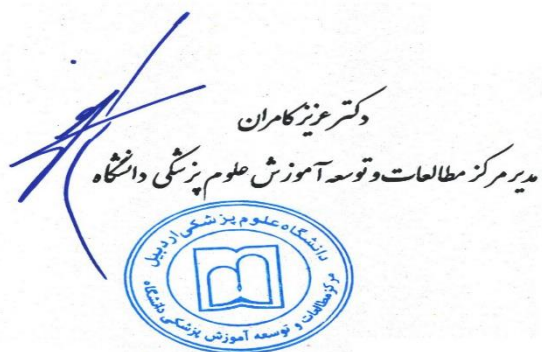 دکتر عزیز کامران
مدیر مرکز مطالعات و توسعه آموزش علوم پزشکی دانشگاه
دانشگاه علوم پزشکی اردبیل
مرکز مطالعات و توسعه آموزش پزشکی دانشگاه